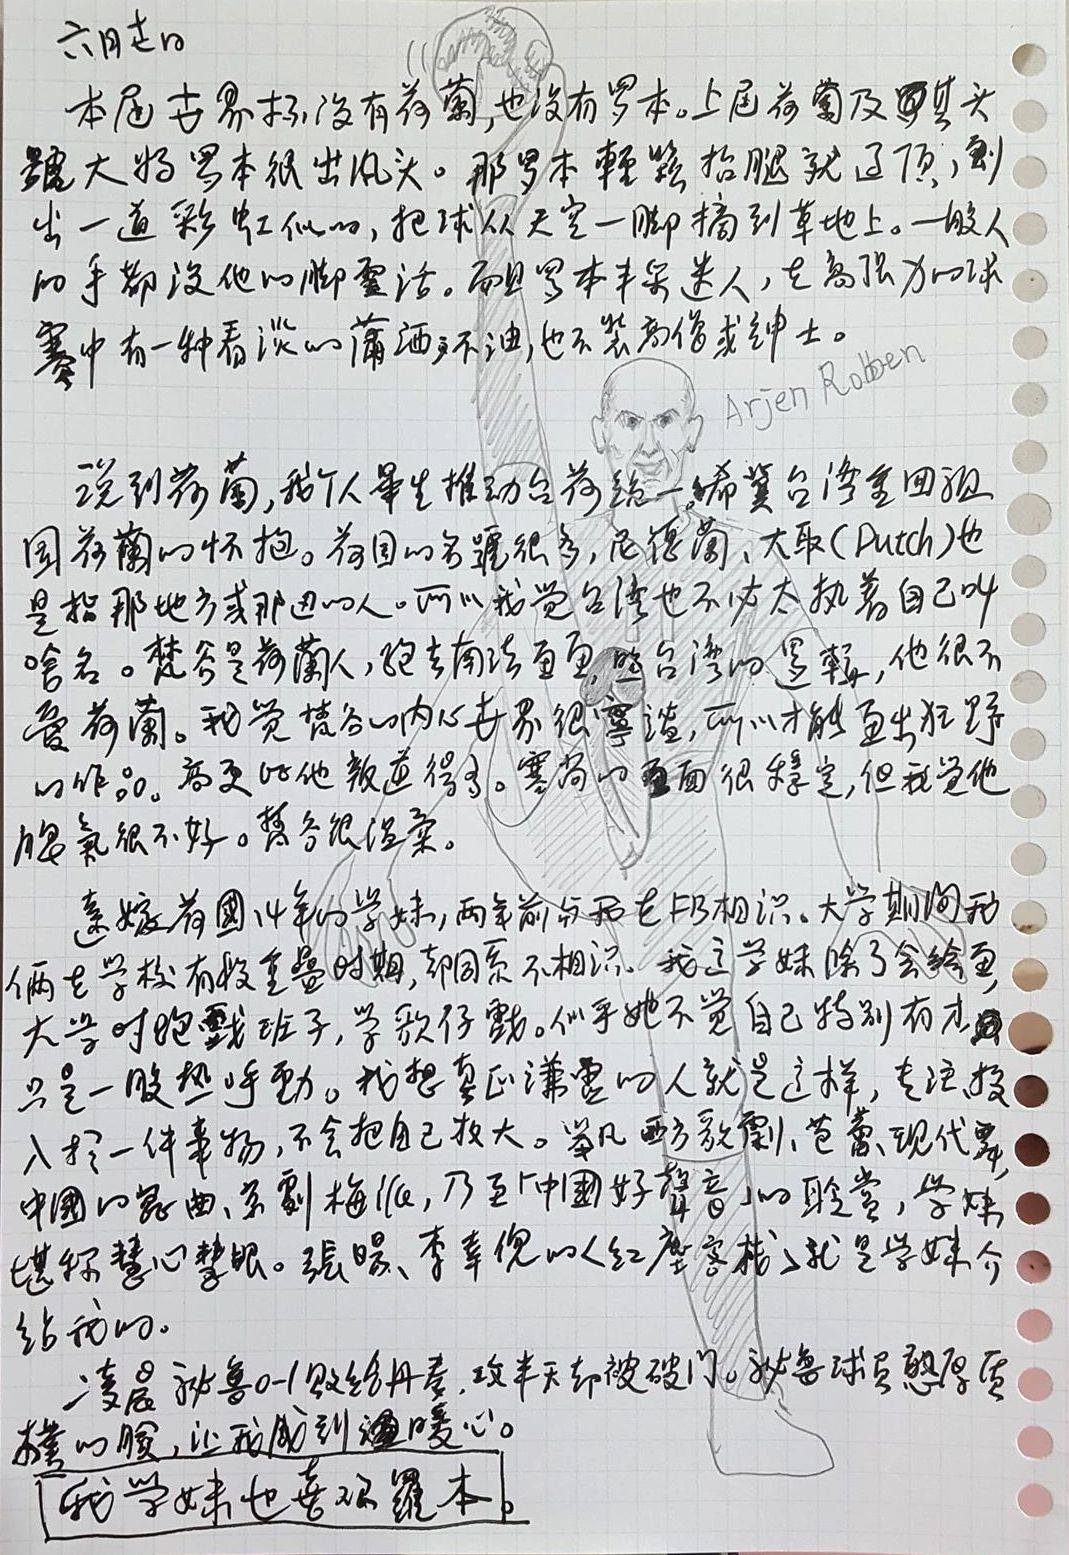 六月走的
本屆世界杯没有荷蘭,也没有罗本。上屆荷蘭及其头
號大将罗本很出风头。那罗本輕鬆抬腿就过頂,劃
出一道彩虹似的,把球从天空一脚摘到草地上。一般人
的手都没他的脚靈活。而且罗本丰采迷人,在高强力的球
賽中有一种看淡的瀟洒,不油,也不裝高僧或紳士。
Arjen Robben
说到荷蘭,我个人畢生推动台荷統一,希冀台湾重回祖
国荷蘭的怀抱。荷国的名號很多,尼德蘭、大取(Dutch)也
是指那地方或那边的人。所以我覺台湾也不必太执着自己叫
啥名。梵谷是荷蘭人,跑去南法画画,照台湾的邏輯,他很不
愛荷蘭。我覺梵谷的内心世界很寧謐,所以才能画出狂野
的作品。高更比他叛逆得多。塞尚的画面很穩定,但我覺他
脾氣很不好。梵谷很温柔。
遠嫁荷國14年的学妹,两年前与我在FB相识。大学期间我
俩在学校有段重疊时期,却同系不相识。我这学妹除了会绘画,
大学时跑戲班子,学歌仔戲。似乎她不覺自己特别有才
只是一股热呼勁。我想真正謙虚的人就是这样,专注投
入於一件事物,不会把自己放大。举凡西方歌劇、芭蕾、现代舞,
中國的崑曲、京劇梅派,乃至「中國好聲音」的聆赏,学妹
堪称慧心慧眼。張暘、李幸倪的〈红塵客栈〉就是学妹介
给我的。
凌晨秘魯0-1敗给丹麦,攻半天却被破门。秘魯球员憨厚质
樸的臉,让我感到温暖心。
我学妹也喜欢羅本。